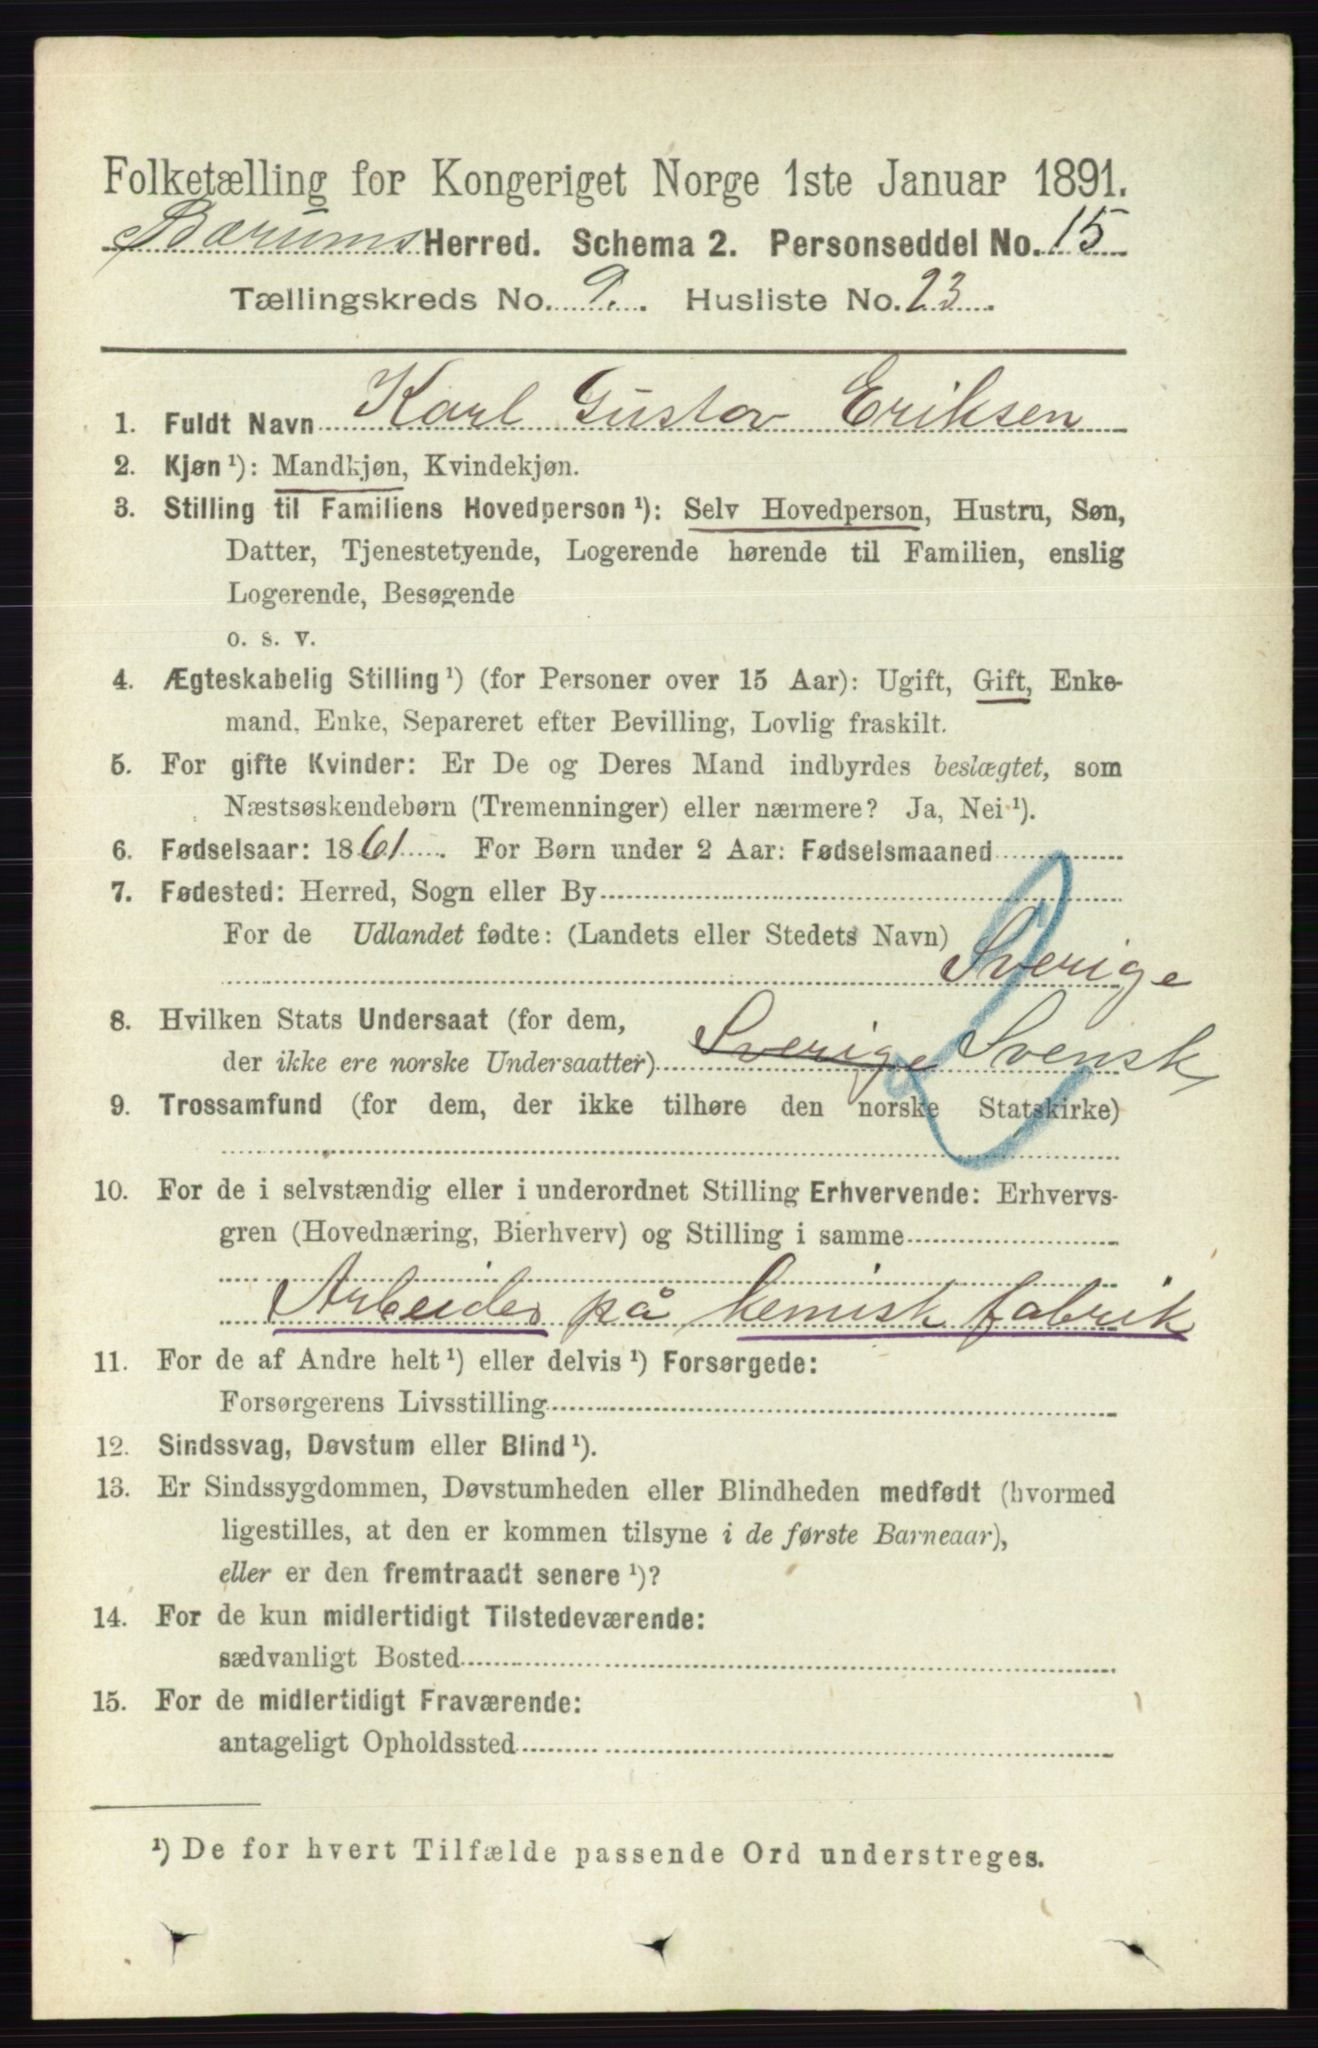 Folketælling for Kongeriget Norge 1ste Januar 1891.
Bærums Herred. Schema 2. Personseddel No. 15
Tællingskreds No. 9. Husliste No. 23
1. Fuldt Navn Karl Gustav Eriksen
2. Kjøn ¹): Mandkjøn, Kvindekjøn.
3. Stilling til Familiens Hovedperson ¹): Selv Hovedperson, Hustru, Søn,
Datter, Tjenestetyende, Logerende hørende til Familien, enslig
Logerende, Besøgende
o. s. v.
4. Ægteskabelig Stilling ¹) (for Personer over 15 Aar): Ugift, Gift, Enke-
mand, Enke, Separeret efter Bevilling, Lovlig fraskilt.
5. For gifte Kvinder: Er De og Deres Mand indbyrdes beslægtet, som
Næstsøskendebørn (Tremenninger) eller nærmere? Ja, Nei ¹).
6. Fødselsaar: 1861. For Børn under 2 Aar: Fødselsmaaned
7. Fødested: Herred, Sogn eller By
For de Udlandet fødte: (Landets eller Stedets Navn)
Sverige
8. Hvilken Stats Undersaat (for dem,
der ikke ere norske Undersaatter) Sverige Svensk
9. Trossamfund (for dem, der ikke tilhøre den norske Statskirke)
10. For de i selvstændig eller i underordnet Stilling Erhvervende: Erhvervs-
gren (Hovednæring, Bierhverv) og Stilling i samme
Arbeider på kemisk fabrik
11. For de af Andre helt ¹) eller delvis ¹) Forsørgede:
Forsørgerens Livsstilling
12. Sindssvag, Døvstum eller Blind ¹).
13. Er Sindssygdommen, Døvstumheden eller Blindheden medfødt (hvormed
ligestilles, at den er kommen tilsyne i de første Barneaar),
eller er den fremtraadt senere ¹)?
14. For de kun midlertidigt Tilstedeværende:
sædvanligt Bosted
15. For de midlertidigt Fraværende:
antageligt Opholdssted
¹) De for hvert Tilfælde passende Ord understreges.